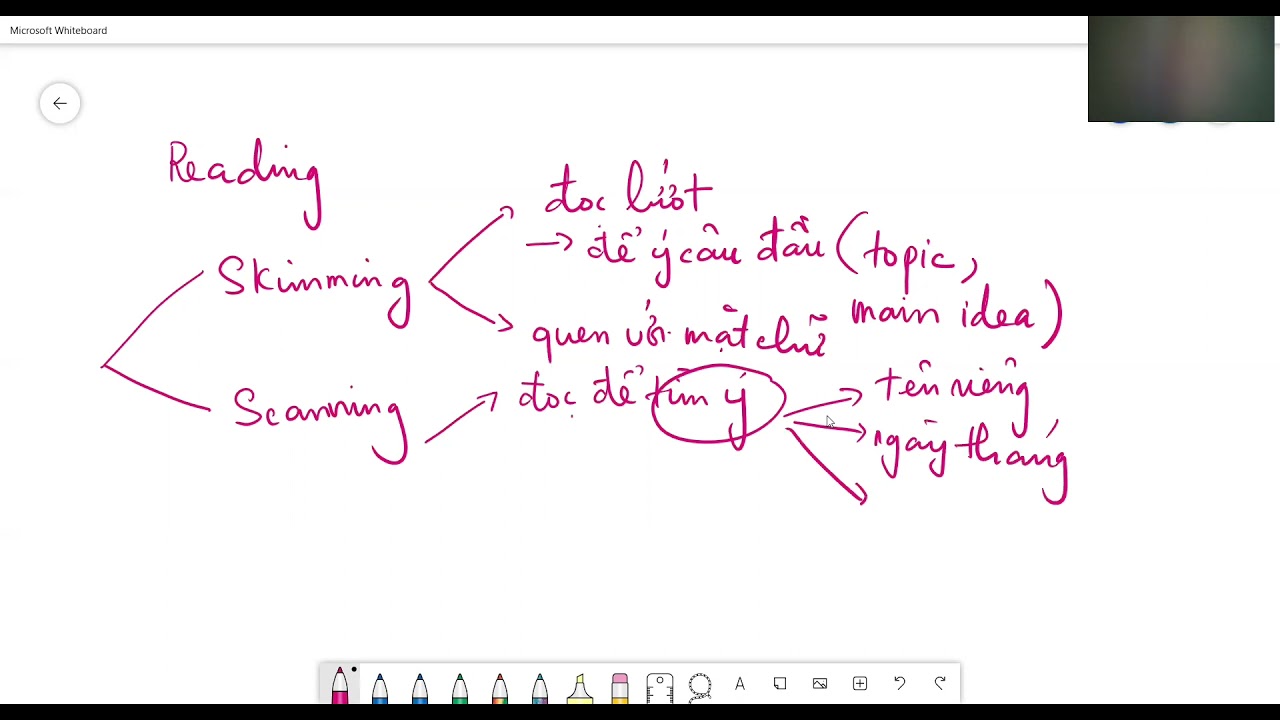 Microsoft Whiteboard
Reading
Skimming
đọc lướt
→ để ý câu đầu (topic,
main idea)
quen với mặt chữ
Scanning
đọc để tìm ý
tên riêng
ngày tháng
A